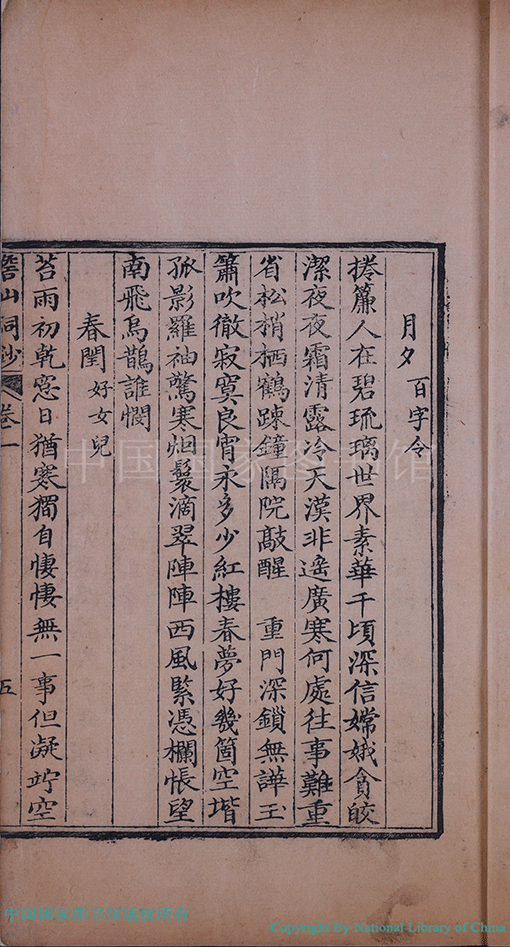 月夕 百字令
捲簾人在碧琉璃世界素華千頃深信嫦娥貪皎
潔夜夜霜清露冷天漢非遙廣寒何處往事難重
省松梢栖鶴踈鐘隔院敲醒 重門深鎖無譁玉
簫吹徹寂寞良宵永多少紅樓春夢好幾箇空堦
孤影羅袖驚寒烟鬟滴翠陣陣西風緊憑欄悵望
南飛烏鵲誰憫
春閨 好女兒
苔雨初乾窓日猶寒獨自悽悽無一事但凝竚空
山詞鈔 卷一 五
中国国家图书馆
中国国家图书馆版权所有
Copyright By National Library of China